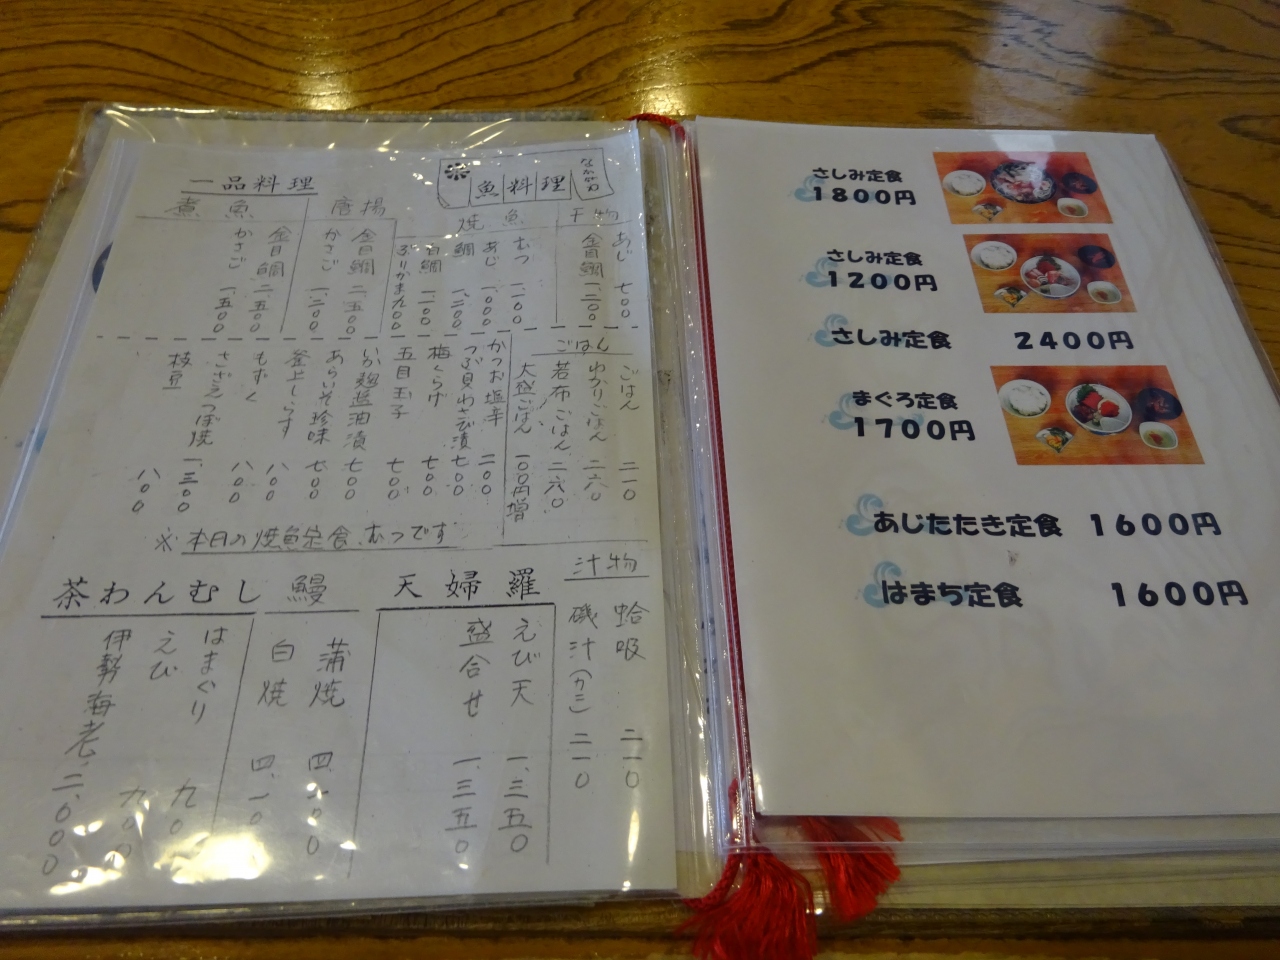 一品料理
魚料理
干物
あじ 七〇〇
金目鯛 一、二〇〇
焼魚
むつ 一、一〇〇
あじ 一、〇〇〇
鯛 一、二〇〇
白鯛 一、一〇〇
ぶりかま 九〇〇
唐揚
金目鯛 二、五〇〇
かさご 一、二〇〇
煮魚
金目鯛 二、五〇〇
かさご 一、五〇〇
ごはん
ごはん 二一〇
わかりごはん 二六〇
若布ごはん 二六〇
大盛ごはん 一〇〇円増
かつお塩辛 二〇〇
つぶ貝わさび漬 七〇〇
梅くらげ 七〇〇
五目玉子 七〇〇
いか麹塩油漬 七〇〇
あらいそ珍味 七〇〇
釜上しらす 八〇〇
もずく 八〇〇
さざえつぼ焼 一、三〇〇
枝豆 八〇〇
※本日の焼魚定食むつです
汁物
蛤吸 二一〇
磯汁(カニ) 二一〇
天婦羅
えび天 一、三五〇
盛合せ 一、三五〇
鰻
蒲焼 四、一〇〇
白焼 四、一〇
茶わんむし
はまぐり 九〇
えび 九〇〇
伊勢海老 二、〇〇〇
さしみ定食
1800円
さしみ定食
1200円
さしみ定食 2400円
まぐろ定食
1700円
あじたたき定食 1600円
はまち定食 1600円